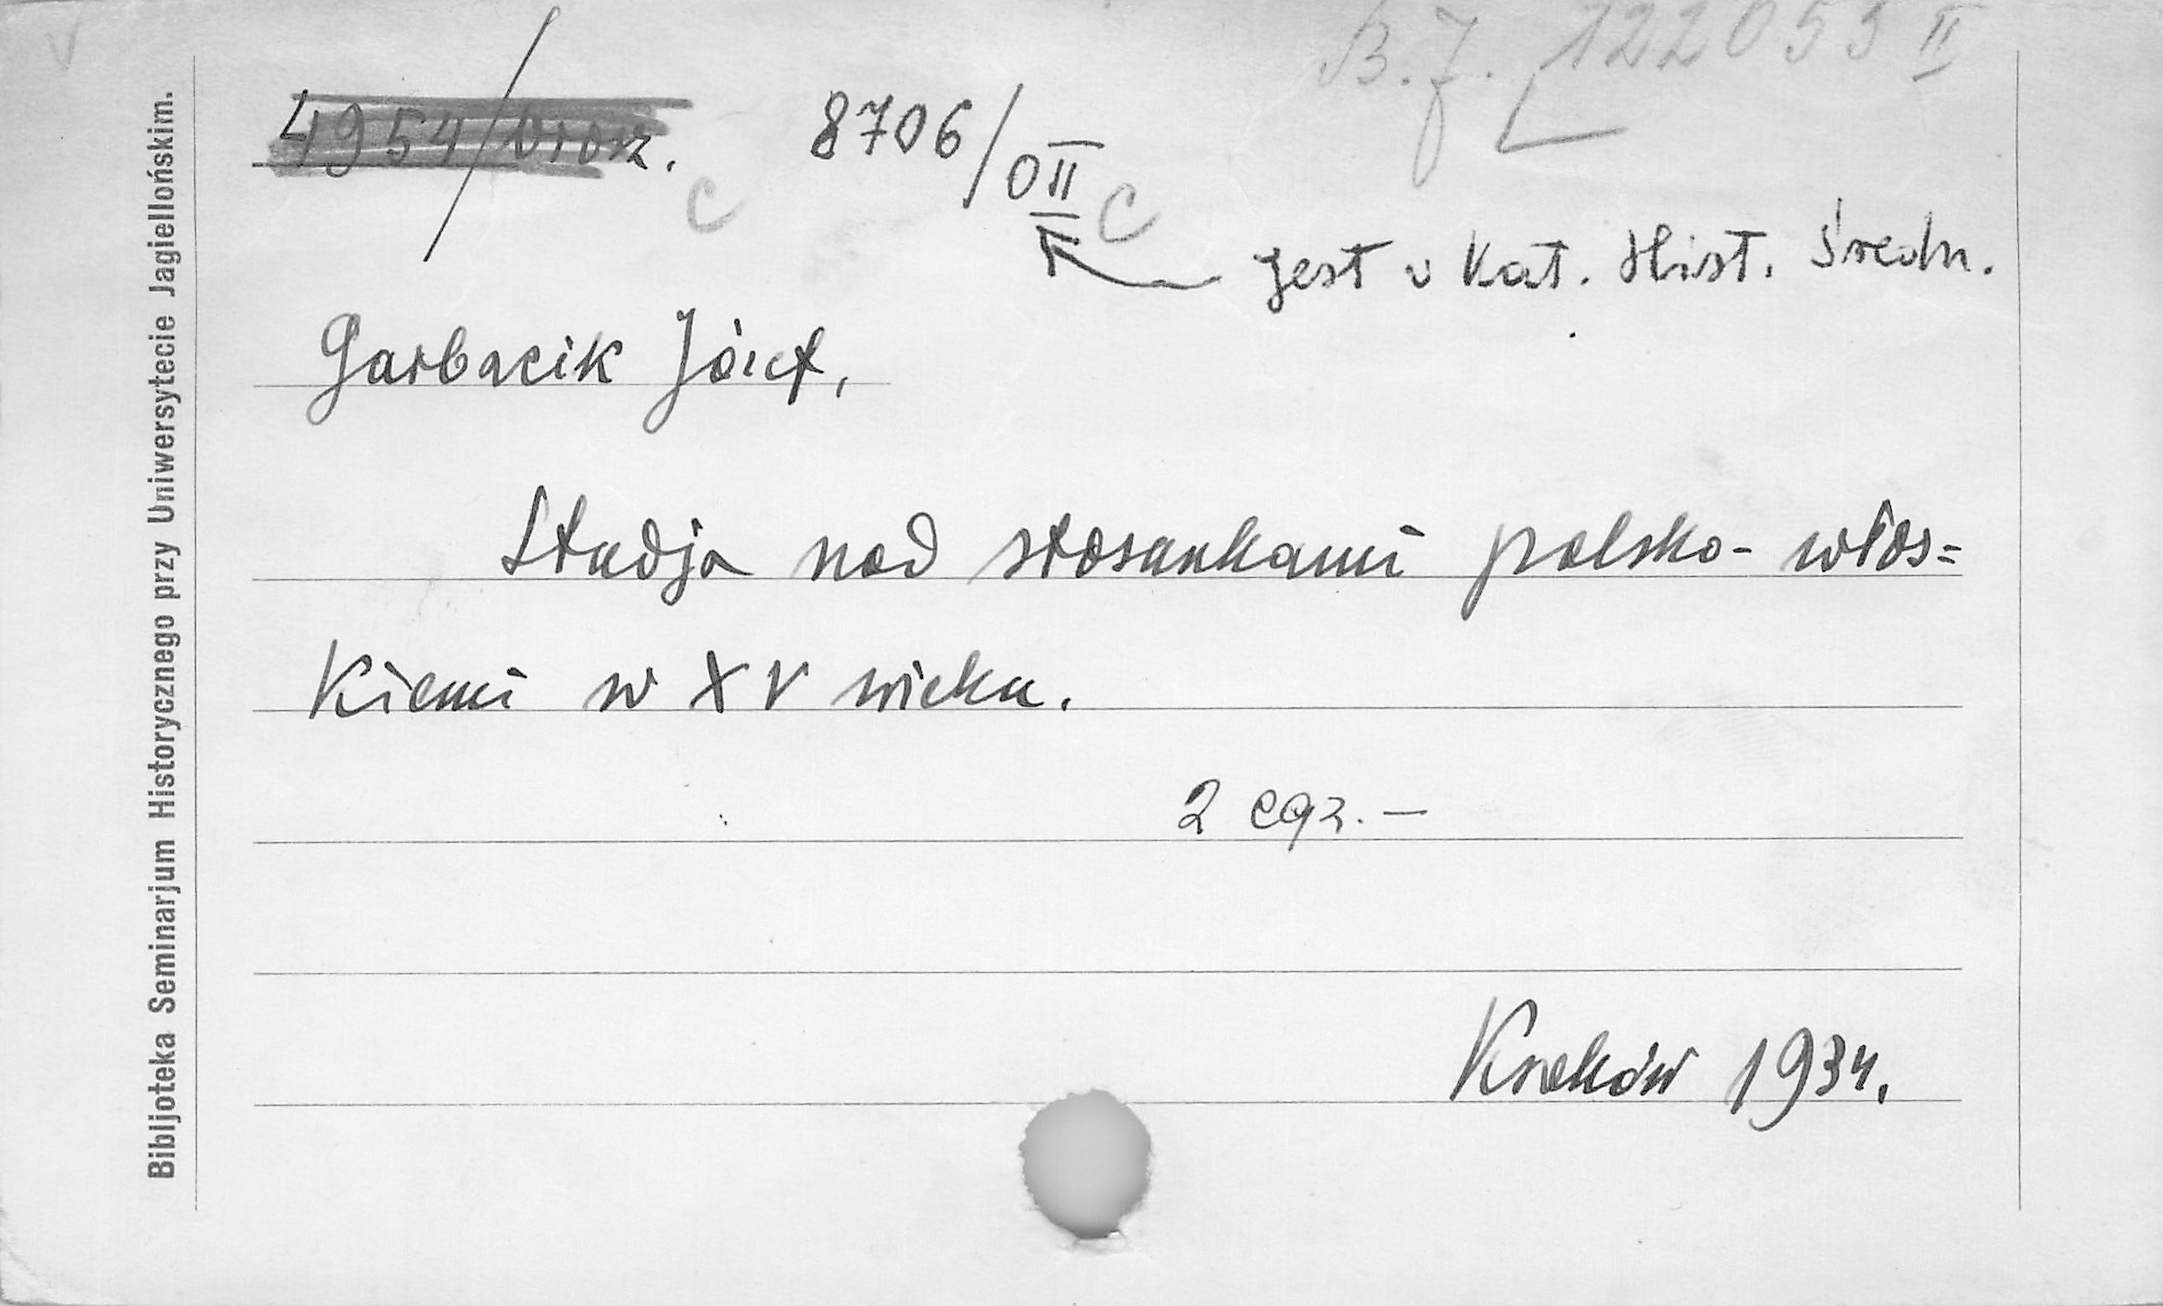 B.J. 122053 II
4954/Brosz. 8706/OII
C C
jest w Kat. Hist. Średn.
Garbacik Józef,
Studja nad stosunkami polsko-włos=
kiemi w XV wieku.
2 egz. –
Kraków 1934.
Bibljoteka Seminarjum Historycznego przy Uniwersytecie Jagiellońskim.